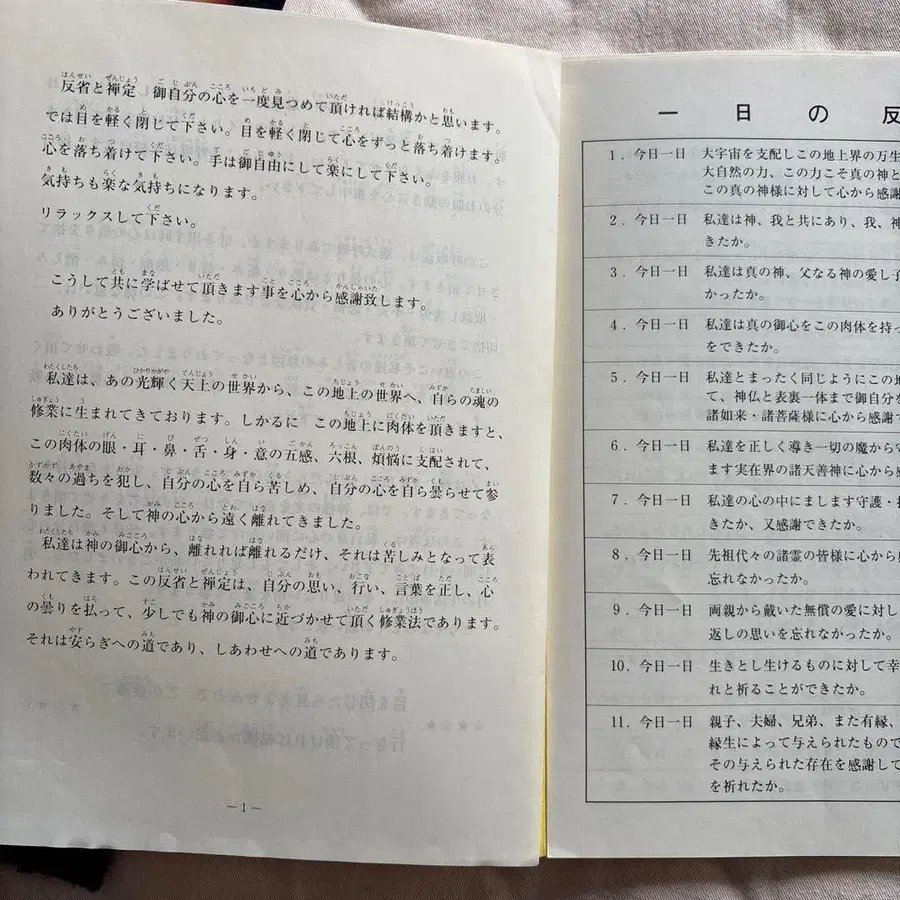 反省と禅定　御自分の心を一度見つめて頂ければ結構かと思います。
では目を軽く閉じて下さい。目を軽く閉じて心をずっと落ち着けます。
心を落ち着けて下さい。手は御自由にして楽にして下さい。
気持ちも楽な気持ちになります。
リラックスして下さい。
こうして共に学ばせて頂きます事を心から感謝致します。
ありがとうございました。
私達は、あの光輝く天上の世界から、この地上の世界へ、自らの魂の
修業に生まれてきております。しかるに　この地上に肉体を頂きますと、
この肉体の眼・耳・鼻・舌・身・意の五感、六根、煩悩に支配されて、
数々の過ちを犯し、自分の心を自ら苦しめ、自分の心を自ら曇らせて参
りました。そして神の心から遠く離れてきました。
私達は神の御心から、離れれば離れるだけ、それは苦しみとなって表
われてきます。この反省と禅定は、自分の思い、行い、言葉を正し、心
の曇りを払って、少しでも神の御心に近づかせて頂く修業法であります。
それは安らぎへの道であり、しあわせへの道であります。
―1―
一日の反
1．今日一日　大宇宙を支配しこの地上界の万生
大自然の力、この力こそ真の神と
この真の神様に対して心から感謝
2．今日一日　私達は神、我と共にあり、我、神
きたか。
3．今日一日　私達は真の神、父なる神の愛し子
かったか。
4．今日一日　私達は真の御心をこの肉体を持っ
をできたか。
5．今日一日　私達とまったく同じようにこの地
て、神仏と表裏一体まで御自分を
諸如来・諸菩薩様に心から感謝で
6．今日一日　私達を正しく導き一切の魔から守
ます実在界の諸天善神に心から感
7．今日一日　私達の心の中にまします守護・指
きたか、又感謝できたか。
8．今日一日　先祖代々の諸霊の皆様に心から感
忘れなかったか。
9．今日一日　両親から戴いた無償の愛に対し
返しの思いを忘れなかったか。
10．今日一日　生きとし生けるものに対して幸
れと祈ることができたか。
11．今日一日　親子、夫婦、兄弟、また有縁、
縁生によって与えられたもので
その与えられた存在を感謝して
を祈れたか。